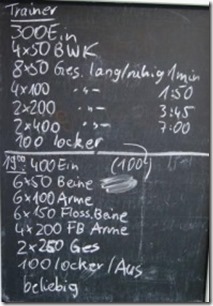 Trainer
300 Ein
4x50 BWK
8x50 Ges. lang/ruhig 1min
4x100 -"- 1:50
2x200 -"- 3:45
2x400 -"- 7:00
100 locker
19:00 400 Ein (100)
6x50 Beine
6x100 Arme
6x150 Floss. Beine
4x200 FB Arme
2x250 Ges
100 locker/Aus
beliebig